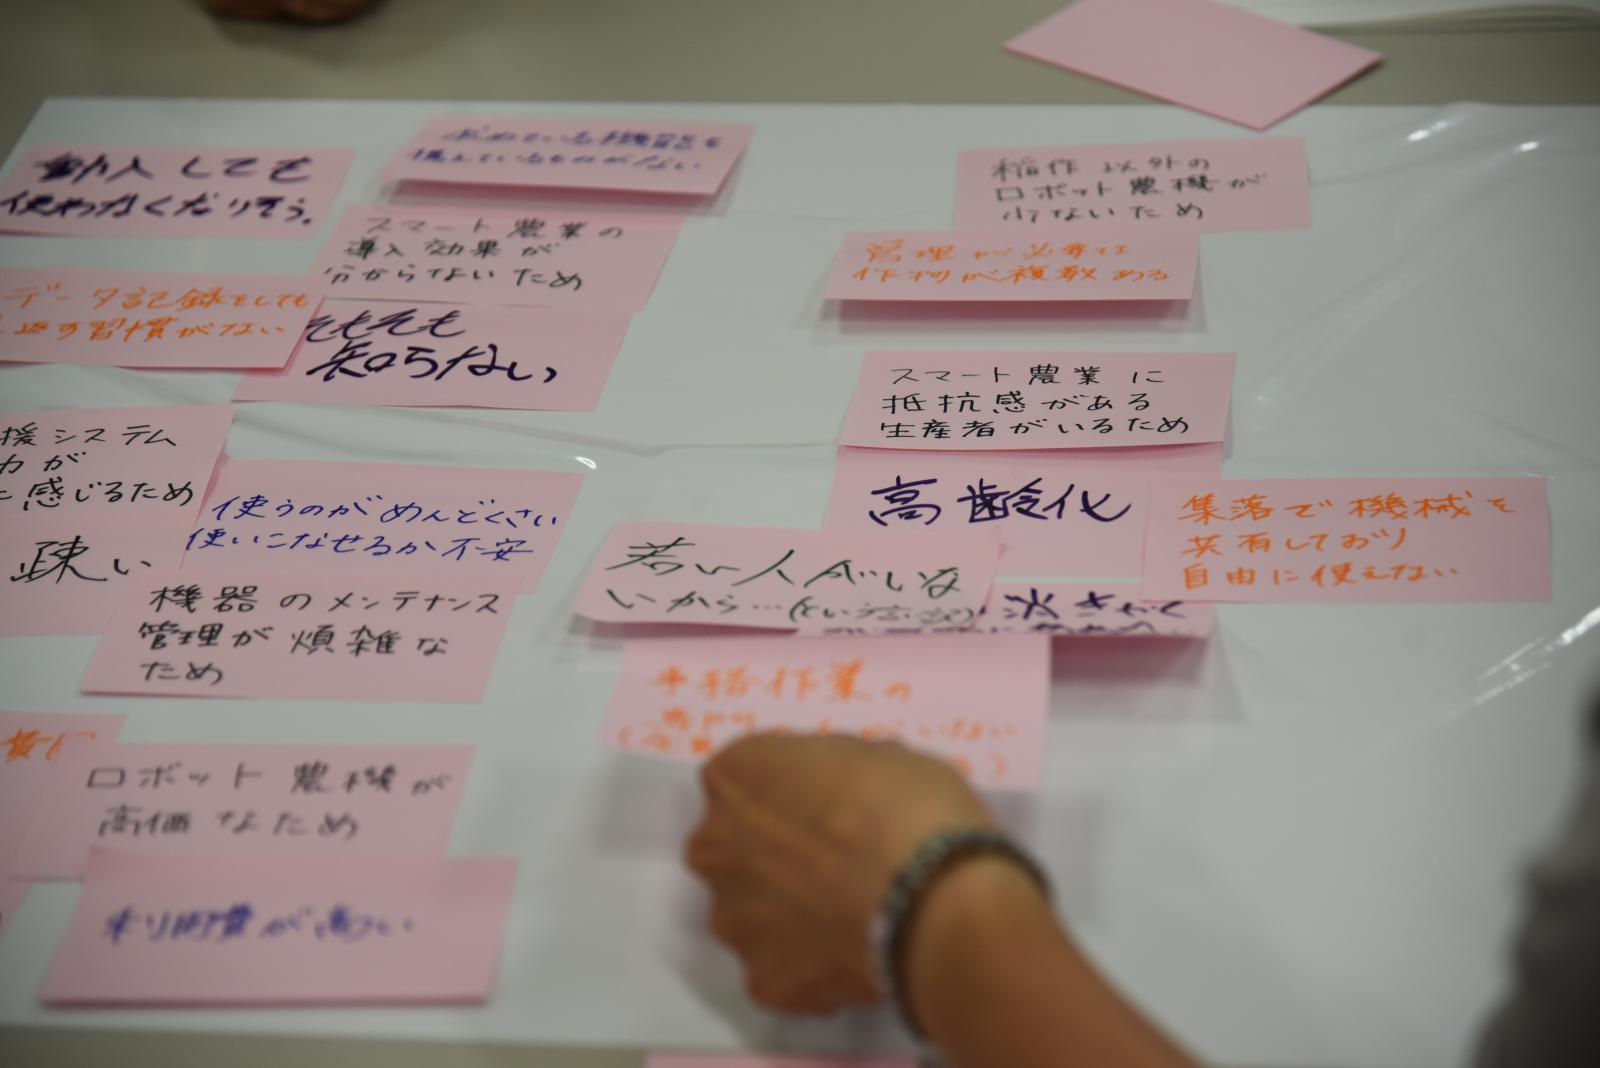 導入しても
使わなくなりそう。
求めている機能を
備えているものがない
スマート農業の
導入効果が
分からないため
データ記録をしても
習慣がない
そもそも
知らない
援システム
力が
に感じるため
疎い
使うのがめんどくさい
使いこなせるか不安
機器のメンテナンス
管理が煩雑な
ため
ロボット農機が
高価なため
利用費が高い
稲作以外の
ロボット農機が
少ないため
管理が必要な
作物が複数ある
スマート農業に
抵抗感がある
生産者がいるため
高齢化
集落で機械を
共有しており
自由に使えない
若い人がいな
いから…(という意識)
事務作業の
専門の
いない